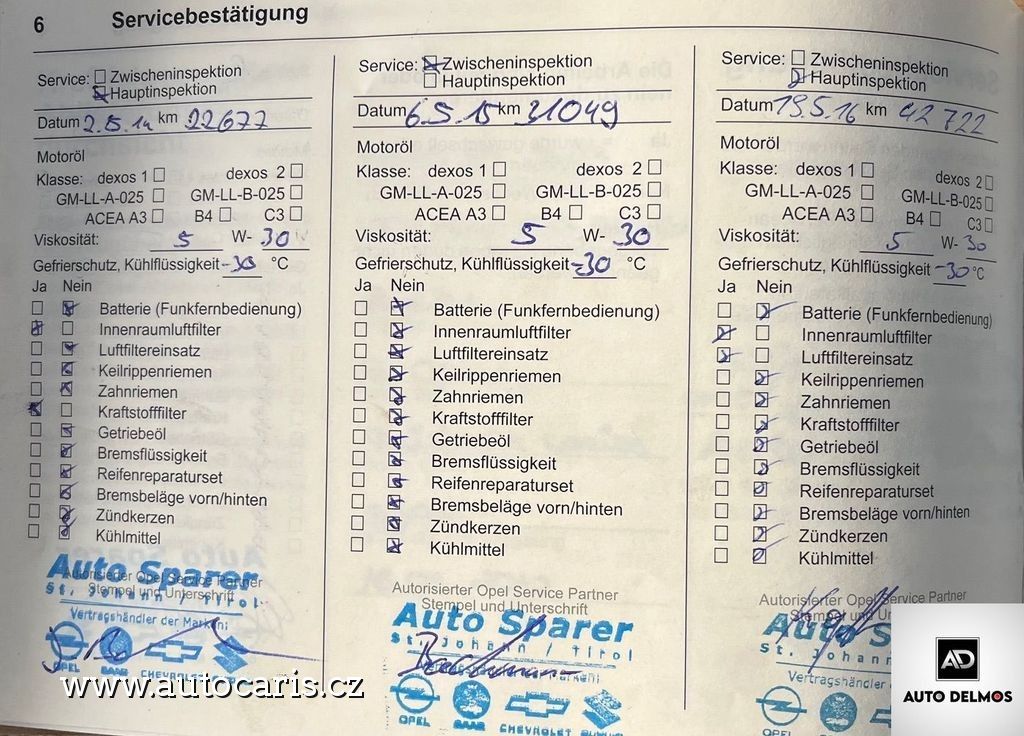 6 Servicebestätigung
Service: Zwischeninspektion
Hauptinspektion
Datum 2.5.14 km 22677
Motoröl
Klasse: dexos 1 dexos 2
GM-LL-A-025 GM-LL-B-025
ACEA A3 B4 C3
Viskosität: 5 W- 30
Gefrierschutz, Kühlflüssigkeit -30 °C
Ja Nein
Batterie (Funkfernbedienung)
Innenraumluftfilter
Luftfiltereinsatz
Keilrippenriemen
Zahnriemen
Kraftstofffilter
Getriebeöl
Bremsflüssigkeit
Reifenreparaturset
Bremsbeläge vorn/hinten
Zündkerzen
Kühlmittel
Autorisierter Opel Service Partner
Stempel und Unterschrift
Auto Sparer
St. Johann / Tirol
Vertragshändler der Marken:
OPEL SAAB CHEVROLET
Service: Zwischeninspektion
Hauptinspektion
Datum 6.5.15 km 31049
Motoröl
Klasse: dexos 1 dexos 2
GM-LL-A-025 GM-LL-B-025
ACEA A3 B4 C3
Viskosität: 5 W- 30
Gefrierschutz, Kühlflüssigkeit -30 °C
Ja Nein
Batterie (Funkfernbedienung)
Innenraumluftfilter
Luftfiltereinsatz
Keilrippenriemen
Zahnriemen
Kraftstofffilter
Getriebeöl
Bremsflüssigkeit
Reifenreparaturset
Bremsbeläge vorn/hinten
Zündkerzen
Kühlmittel
Autorisierter Opel Service Partner
Stempel und Unterschrift
Auto Sparer
St. Johann / Tirol
OPEL SAAB CHEVROLET
Service: Zwischeninspektion
Hauptinspektion
Datum 19.5.16 km 42722
Motoröl
Klasse: dexos 1 dexos 2
GM-LL-A-025 GM-LL-B-025
ACEA A3 B4 C3
Viskosität: 5 W- 30
Gefrierschutz, Kühlflüssigkeit -30 °C
Ja Nein
Batterie (Funkfernbedienung)
Innenraumluftfilter
Luftfiltereinsatz
Keilrippenriemen
Zahnriemen
Kraftstofffilter
Getriebeöl
Bremsflüssigkeit
Reifenreparaturset
Bremsbeläge vorn/hinten
Zündkerzen
Kühlmittel
Autorisierter Opel Service Partner
Stempel und Unterschrift
Auto S
St. Johann
Vertragshändler
OPEL SAAB
www.autocaris.cz
AD
AUTO DELMOS